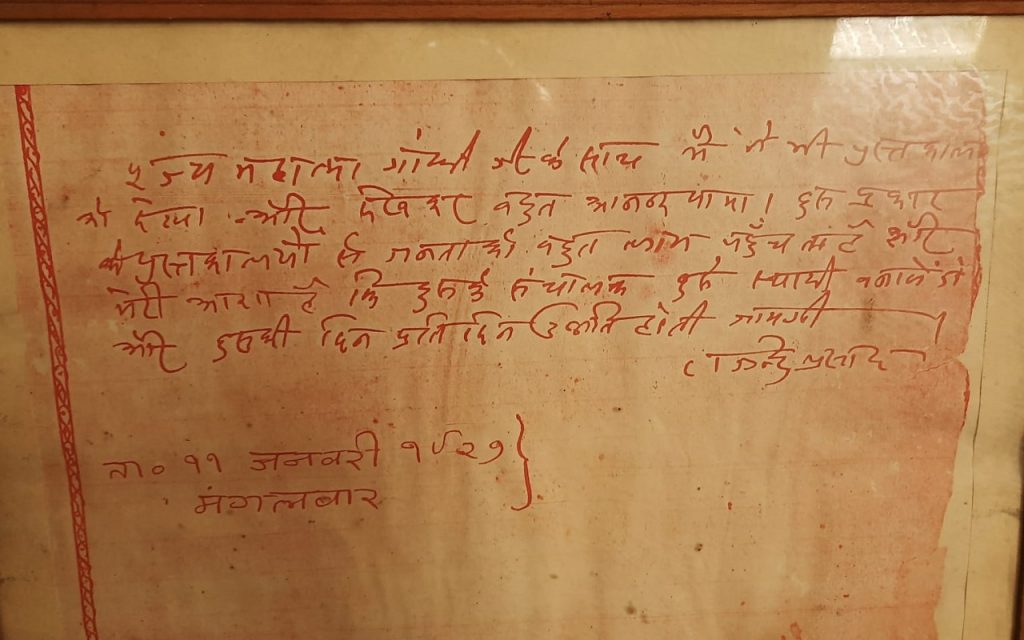 पूज्य महात्मा गांधी जी के साथ मैं ने भी पुस्तकालय
को देखा और देखकर बहुत आनन्द पाया। इस प्रकार
के पुस्तकालयों से जनता को बहुत लाभ पहुँचता है और
मेरी आशा है कि इसके संचालक इसे स्थायी बनावेंगे
और इसकी दिन प्रतिदिन उन्नति होती जायगी।
राजेन्द्र प्रसाद
ता० ११ जनवरी १९२७
मंगलवार